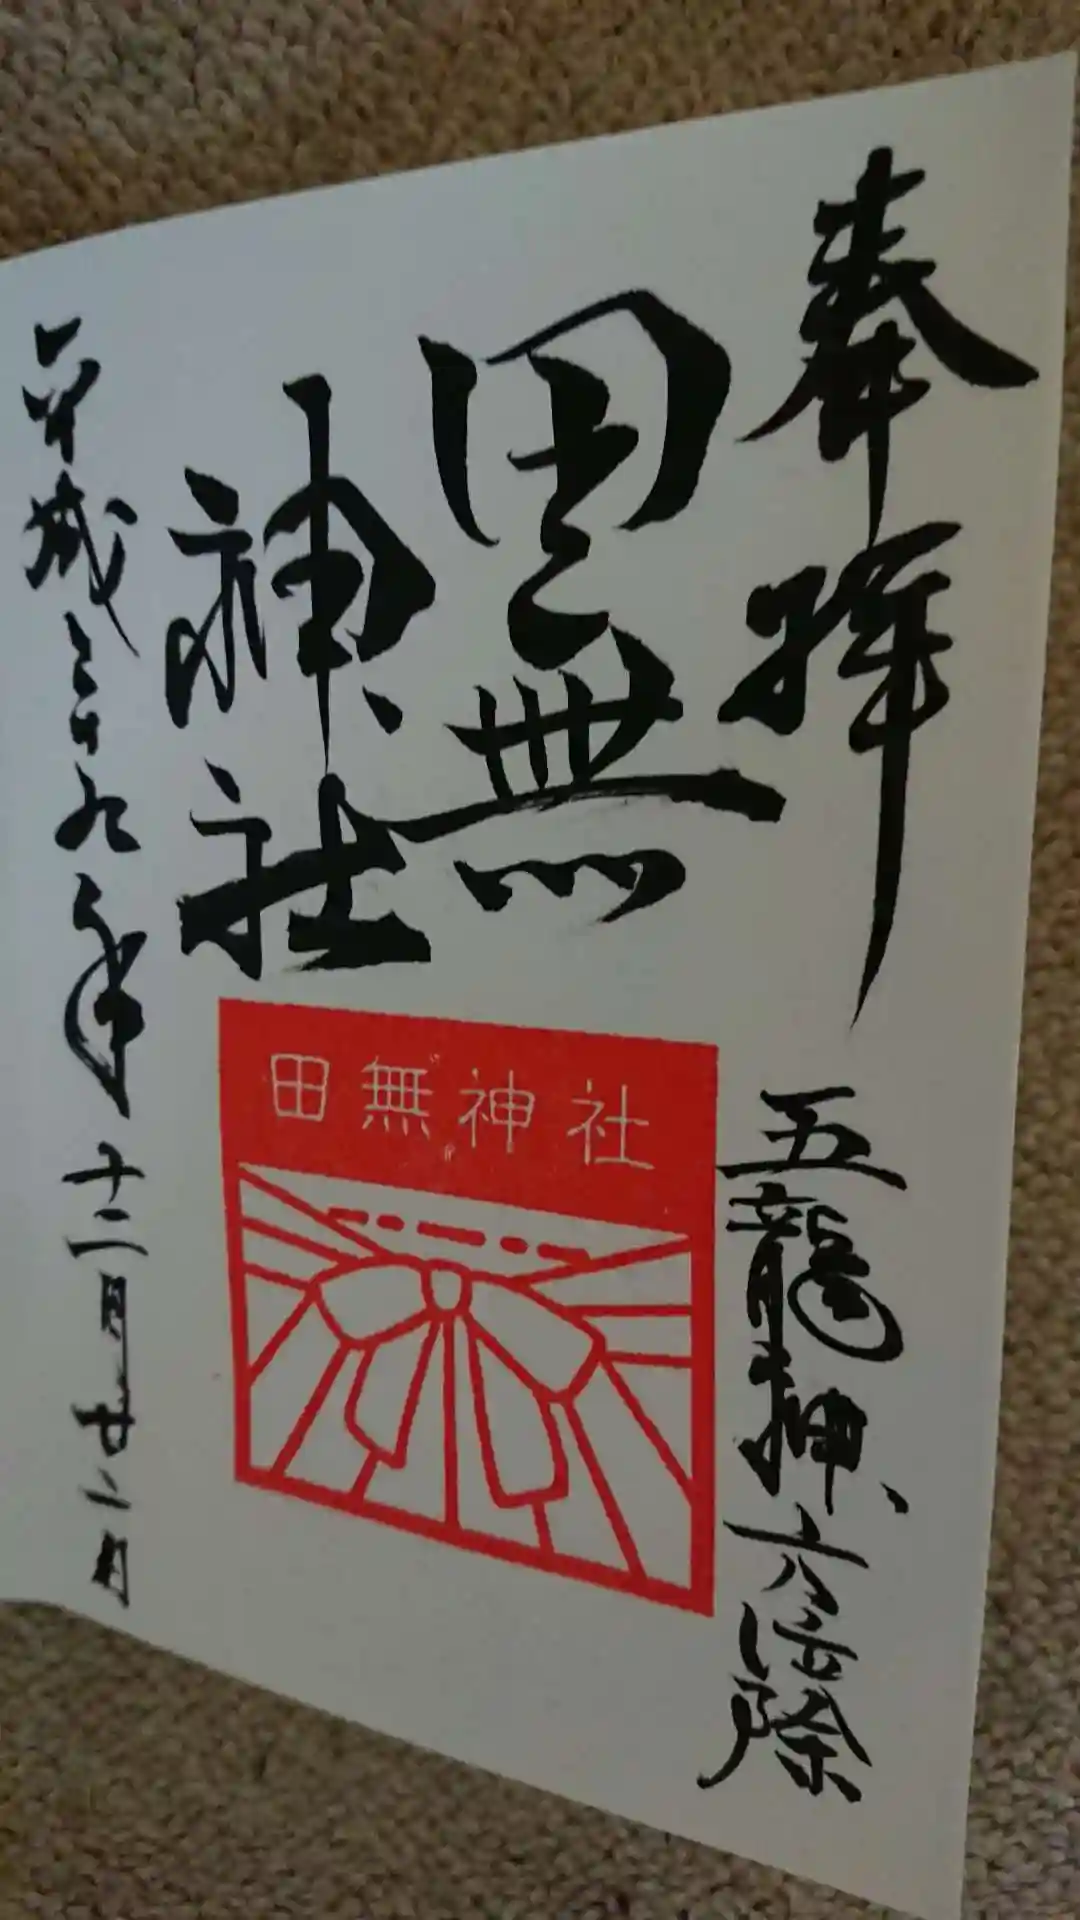 奉拝
五龍神 方位除
田無
神社
田無神社
平成二十九年十二月廿二日